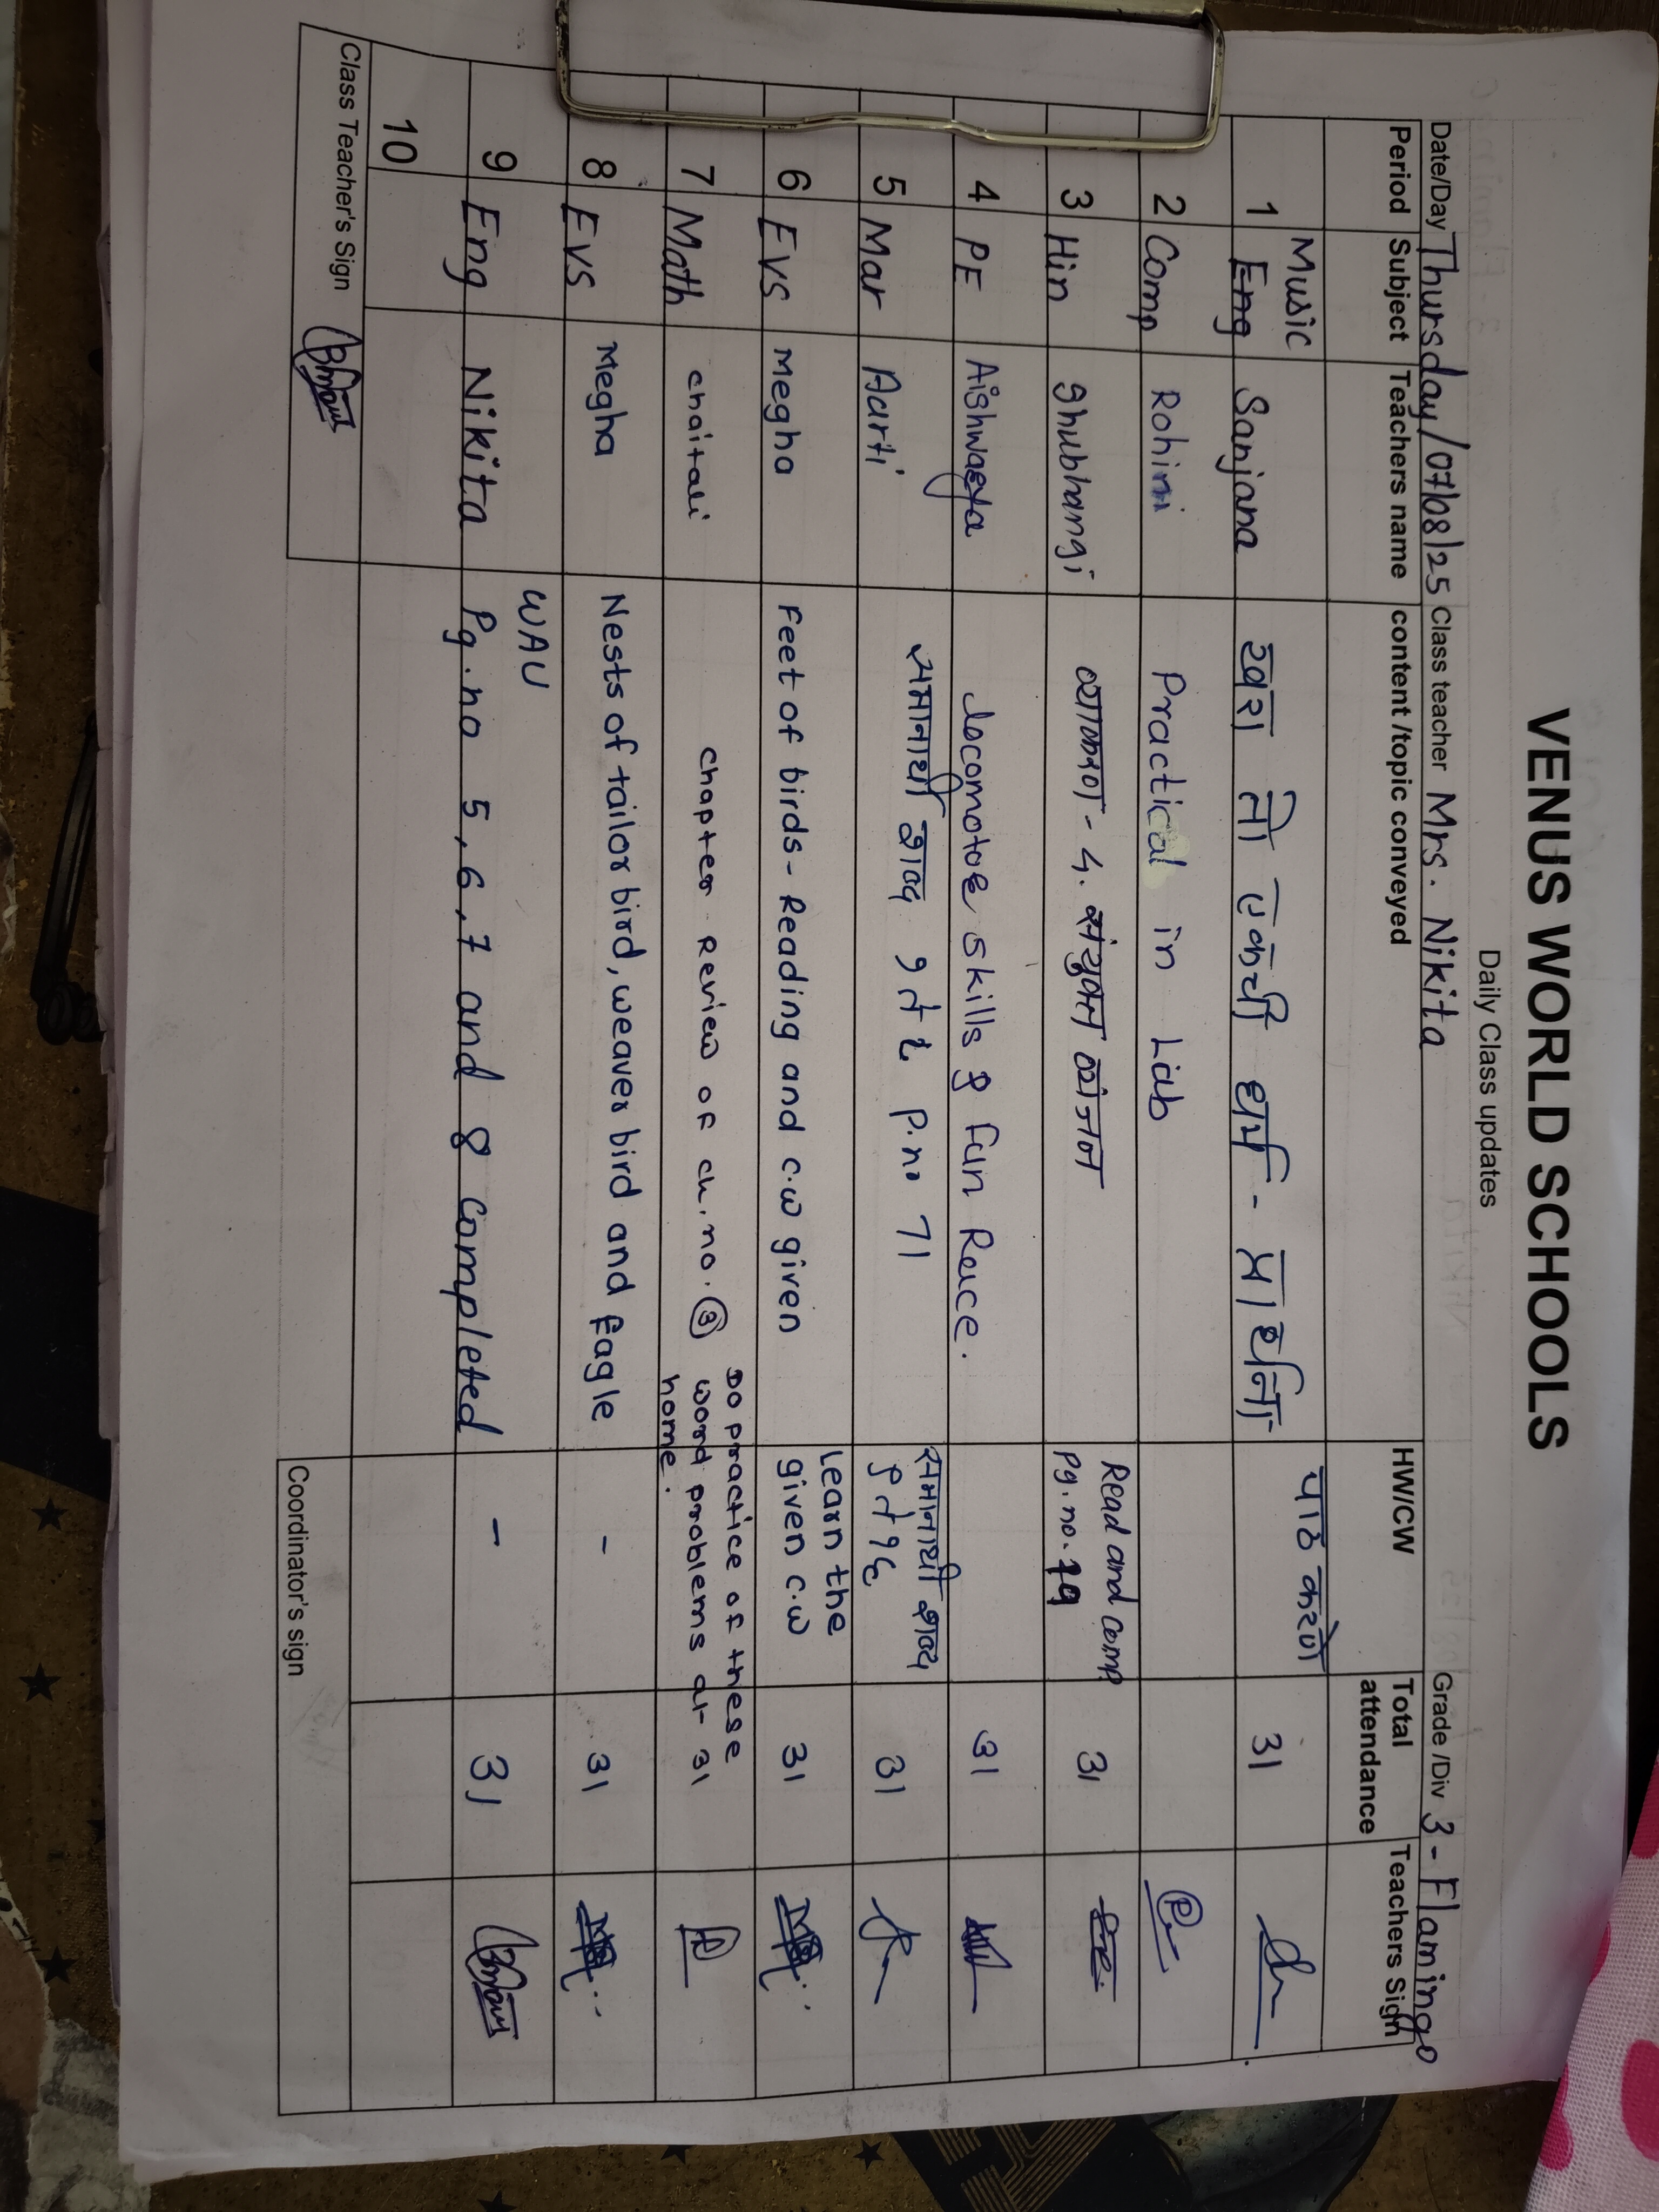 VENUS WORLD SCHOOLS
Daily Class updates
Date/Day Thursday/07/08/25 Class teacher Mrs. Nikita Grade /Div 3 - Flamingo
Period Subject Teachers name content /topic conveyed HW/CW Total attendance Teachers Sign
1 Music Eng Sanjana खरा तो एकची धर्म - प्रार्थना पाठ करणे 31
2 Comp Rohini Practical in Lab
3 Hin Shubhangi व्याकरण - 4. संयुक्त व्यंजन Read and comp 31
Pg. no. 19
4 PE Aishwarya locomotor skills & fun Race. 31
5 Mar Aarti समानार्थी शब्द p.no 71 समानार्थी शब्द 31
१ ते १८
6 EVS Megha Feet of birds - Reading and c.w given Learn the 31
given c.w
7 Math chaitali chapter Review of ch. no. 3 Do practice of these 31
word problems at
home.
8 EVS Megha Nests of tailor bird, weaver bird and Eagle - 31
WAU
9 Eng Nikita Pg. no 5, 6, 7 and 8 completed - 31
10
Class Teacher's Sign Coordinator's sign